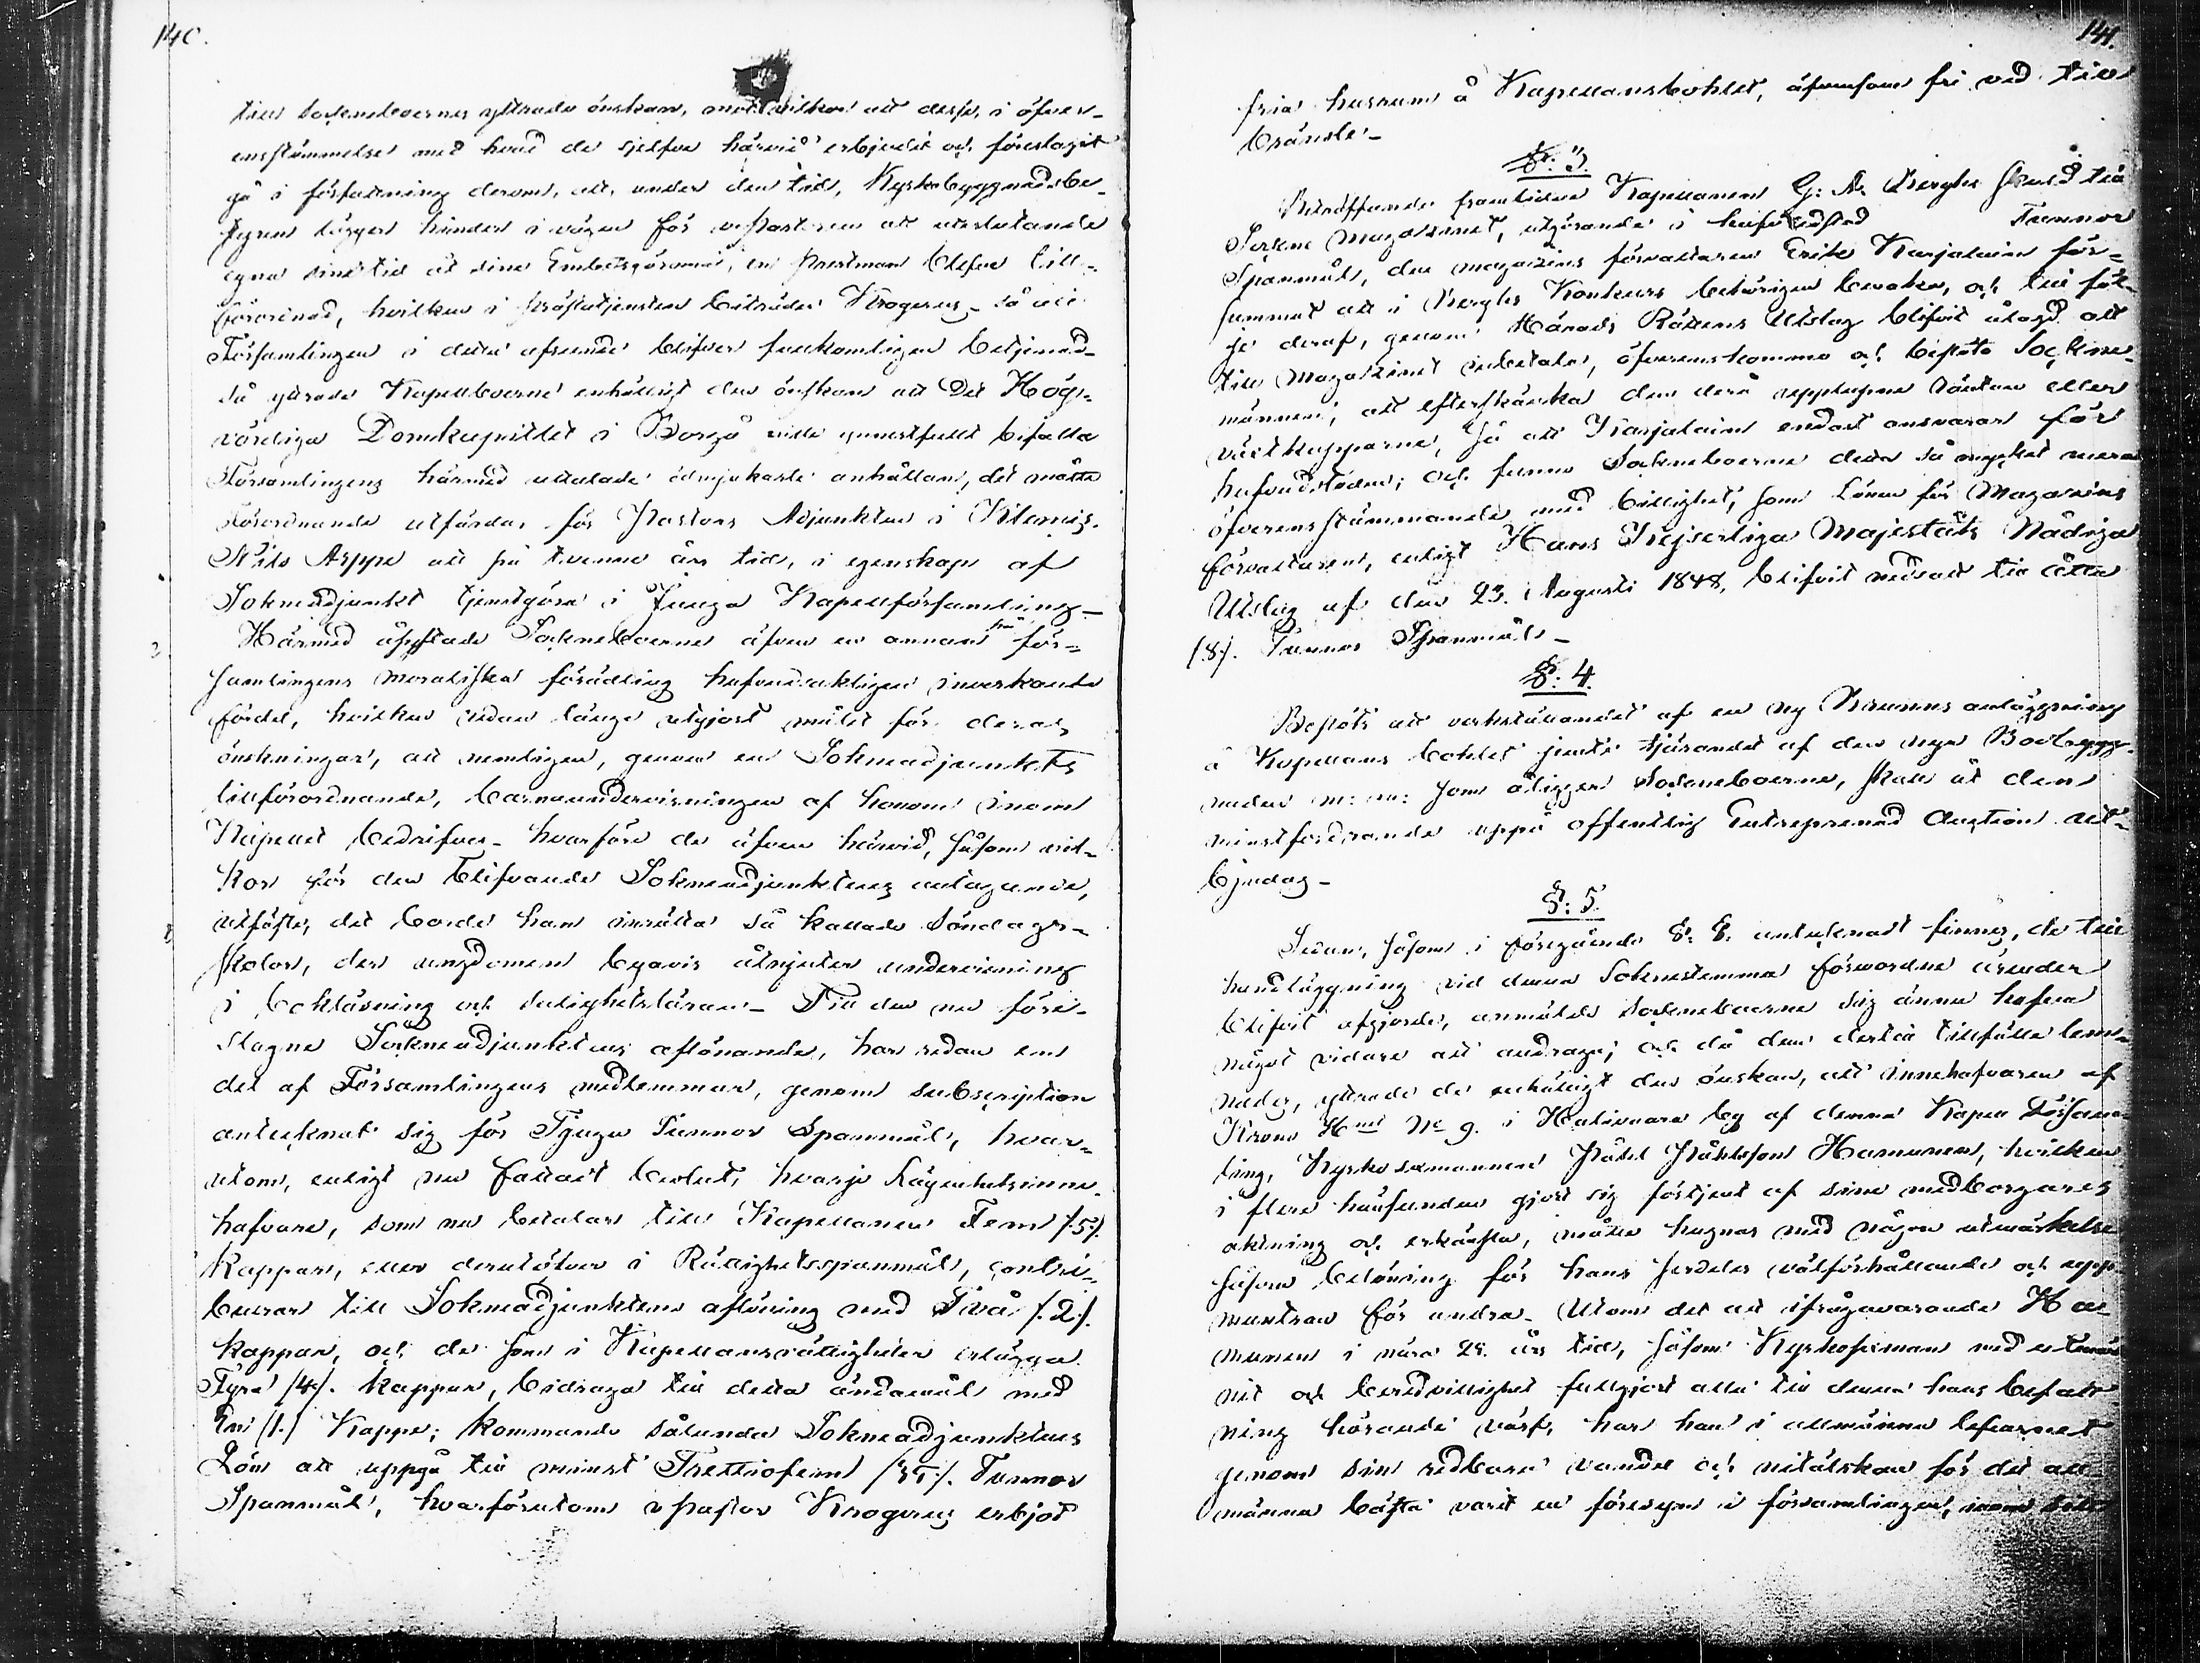 140.
till Sockneboernes yttrade önskan, med vilkor att desse, i öfver-
ensstämmelse med hvad de sjelfve härvid erbjudit och föreslagit
gå i författning derom, att, under den tid, Kyrkobyggnadsbe-
styren lägger hinder i vägen för v. Pastoren att uteslutande
egna sin tid åt sina Embetsgöromål, en Prestman blefve till-
förordnad, hvilken i Prästatjensten biträder Krogerus - så att
Församlingen i detta afseende blifver fullkomligen betjenad-
så yttrade Kapellboerne enhälligt den önskan att Det Hög-
vördiga Domkapitlet i Borgå ville gunstfullt bifalla
Församlingens härmed uttalade ödmjukaste anhållan, det måtte
Förordnande utfärdas för Pastors Adjunkten i Kitemis.
Nils Arppe att på tvenne års tid, i egenskap af
Sokneadjunkt tjenstgöra i Juuga Kapellförsamling-
Härmed åsyftade Sockneboerne äfven en annan på för-
samlingens moraliska förädling hufvudsakligen inverkande
fördel, hvilken redan länge utgjort målet för deras
önskningar, att nemligen, genom en Sokneadjunkts
tillförordnande, barnaundervisningen af honom inom
Kapellet bedrifves - hvarföre de äfven härvid, såsom vil-
kor för den blifvande Sokneadjunktens antagande,
utfäste, det borde han inrätta så kallade Söndags-
skolor, der ungdomen byavis åtnjuter undervisning
i bokläsning och salighetsläran - Till den nu före-
slagne Sokneadjunktens aflönande, har redan en
del af Församlingens medlemmar, genom subscription
antecknat sig för Tjugu Tunnor Spannmål, hvar-
utom, enligt nu fattadt beslut, hvarje lägenhetsinne-
hafvare, som nu betalar till Kapellanen Fem /:5:/.
Kappar, eller derutöfver i Rättighetsspanmål, contri-
buerar till Sokneadjunktens aflöning med Två /:2:/.
kappar, och de som i Kapellansrättigheter erlägga
Fyra /:4:/. kappar, bidraga till detta ändamål med
En /:1:/ Kappe; kommande sålunda Sokneadjunktens
Lön att uppgå till minst Trettiofem /:35:/. Tunnor
Spanmål, hvarförutom v. Pastor Krogerus erbjöd
141.
fria husrum å Kapellansbohlet, äfvensom fri ved till
bränsle -
§. 3.
Beträffande framlidne Kapellanen G: A: Berghs skuld till
Sockne Magasinet, utgörande i hufvudstod Tunnor
Spanmål, den magazins förvaltaren Erik Karjalain för-
summat att i Berghs Konkurs behörigen bevaka, och till föl-
je deraf, genom Härads Rättens Utslag blifvit ålagd att
till Magazinet inbetala, öfverenskommo och besluto Sockne-
männen, att efterskänka den derå upplupne räntan eller
växtkapparne, så att Karjalain endast ansvarar för
hufvudstolen; och funno Sockneboerne detta så mycket mera
öfverensstämmande med billighet, som Lönen för Magazins
förvaltaren, enligt Hans Kejserliga Majestäts Nådiga
Utslag af den 23. Augusti 1848, blifvit nedsatt till åtta
/:8:/. Tunnor Spanmål -
§. 4.
Beslöts att verkställandet af en ny Brunns anläggning
å Kapellans bohlet jemte tjärandet af den nya Bodbygg-
naden m: m: som åligger Sockneboerne, skall åt den
minstfordrande uppå offentlig Entreprenad Auction ut-
bjudas -
§. 5.
Sedan, såsom i föregående §. §. antecknadt finnes, de till
handläggning vid denna Soknestemma förevordne ärender
blifvit afgjorde, anmälde Sockneboerne sig ännu hafva
något vidare att andraga; och då dem dertill tillfälle lem-
nades, yttrade de enhälligt den önskan, att innehafvaren af
Krono Hmt No 9. i Halivaara by af denna Kapell Försam-
ling, Kyrko sexmannen Påhl Påhlsson Hamunen, hvilken
i flere hänseenden gjort sig förtjent af sine medborgares
aktning och erkänsla, måtte hugnas med någon utmärkelse
såsom belöning för hans serdeles välförhållande och upp-
muntran för andra - Utom det att ifrågavarande Ha-
munen i nära 28. års tid, såsom Kyrkosexman med utmärkt
nit och beredvillighet fullgjort alla till denna hans befatt-
ning hörande värf, har han i allmänna lefvernet
genom sin redbara vandel och nitälskan för det all-
männa bästa varit en föresyn i församlingen, inom